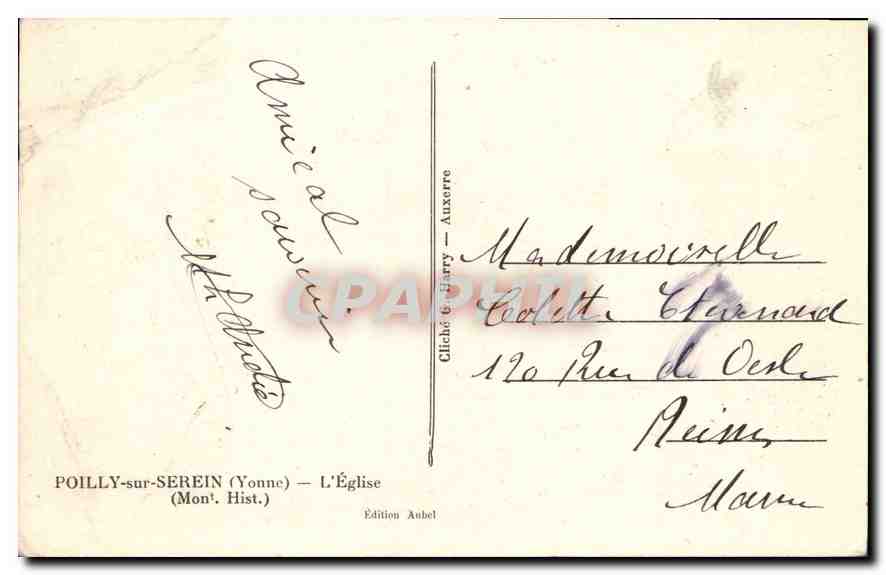 Amical
souvenir
POILLY-sur-SEREIN (Yonne) — L'Église
(Monᵗ. Hist.)
Édition Aubel
Cliché G. Harry — Auxerre
Mademoiselle
Colette
120 Rue de
Reims
Marne
CPAPHIL